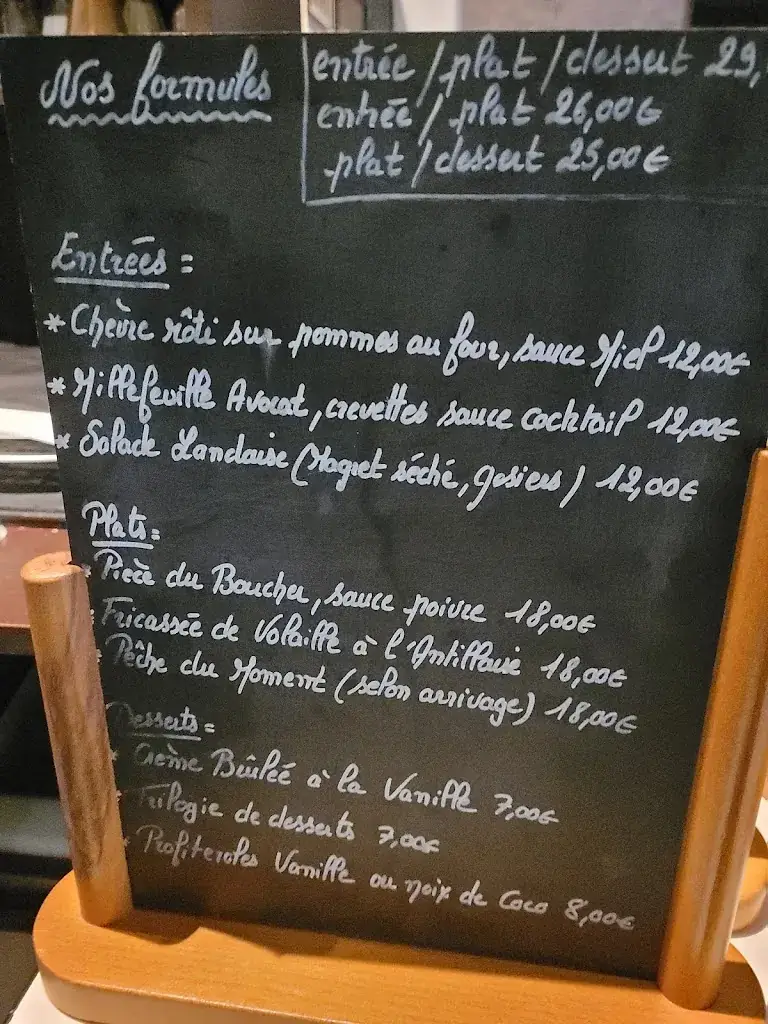 Nos formules
entrée / plat / dessert 29,
entrée / plat 26,00€
plat / dessert 25,00€
Entrées :
* Chèvre rôti sur pommes au four, sauce Miel 12,00€
* Millefeuille Avocat, crevettes sauce cocktail 12,00€
* Salade Landaise (Magret séché, gesiers) 12,00€
Plats :
* Pièce du Boucher, sauce poivre 18,00€
* Fricassée de Volaille à l'Antillaise 18,00€
* Pêche du Moment (selon arrivage) 18,00€
Desserts :
* Crème Brûlée à la Vanille 7,00€
* Trilogie de desserts 7,00€
* Profiteroles Vanille ou noix de Coco 8,00€